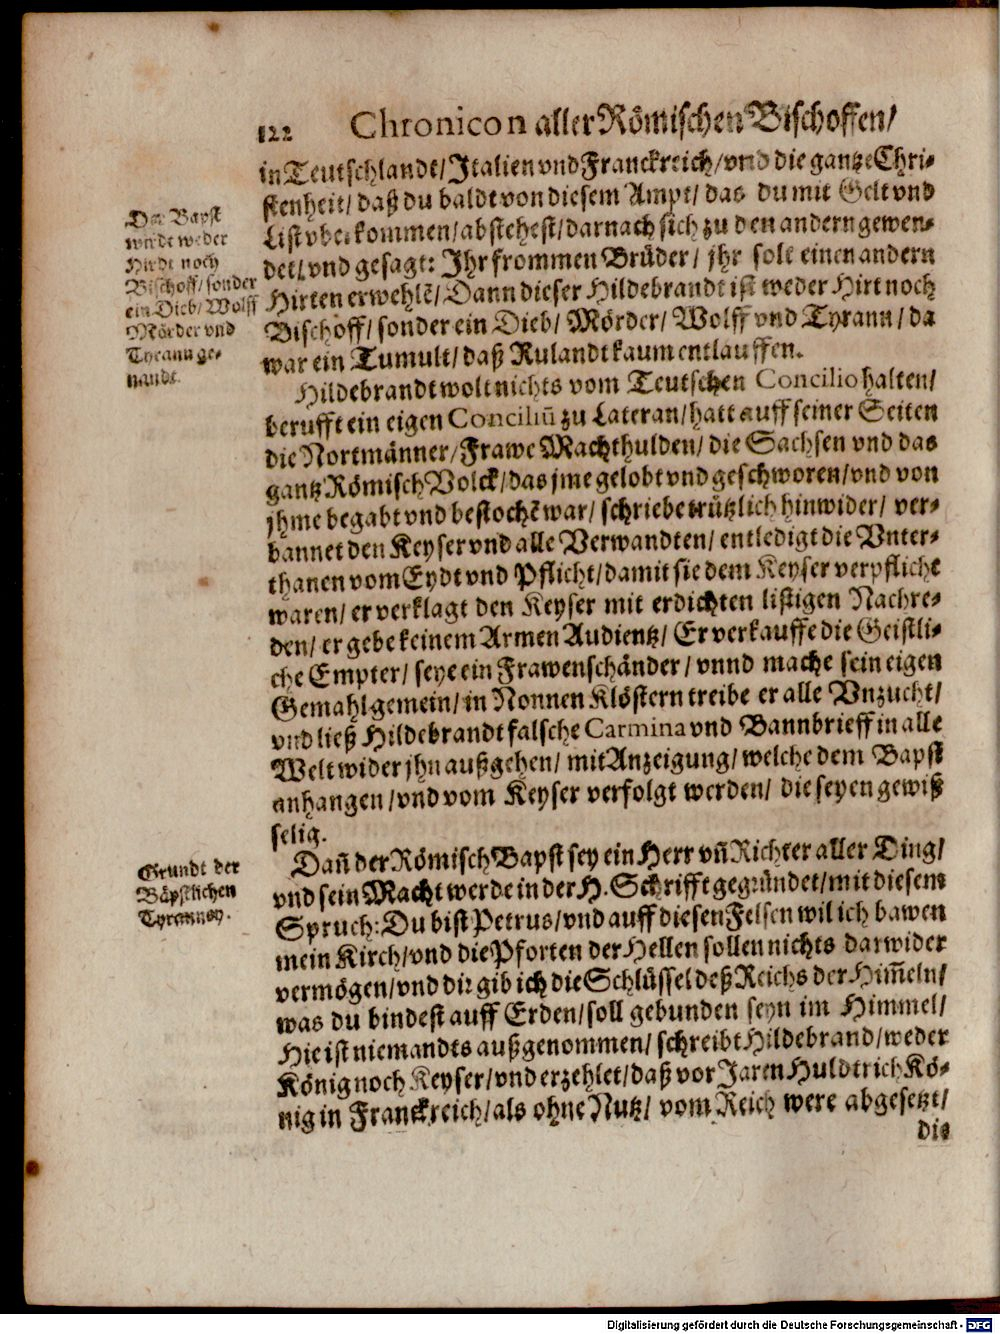 122 Chronicon aller Römischen Bischoffen/
in Teutschlandt/Italien vnd Franckreich/vnd die gantze Chri-
stenheit/ daß du baldt von diesem Ampt/ das du mit Gelt vnd
List vberkommen/abstehest/darnach sich zu den andern gewen-
det/ vnd gesagt: Ihr frommen Brüder/ jhr solt einen andern
Hirten erwehlẽ/Dann dieser Hildebrandt ist weder Hirt noch
Bischoff/ sonder ein Dieb/ Mörder/ Wolff vnd Tyrann/ da
war ein Tumult/ daß Rulandt kaum entlauffen.
Der Bapst
wirdt weder
Hirdt noch
Bischoff/ sonder
ein Dieb/ Wolff
Mörder vnd
Tyrann ge-
nandt.
Hildebrandt wolt nichts vom Teutschen Concilio halten/
berufft ein eigen Conciliũ zu Lateran/hatt auff seiner Seiten
die Nortmänner/Frawe Machthulden/ die Sachsen vnd das
gantz Römisch Volck/das jme gelobt vnd geschworen/vnd von
jhme begabt vnd bestochẽ war/ schriebe trützlich hinwider/ ver-
bannet den Keyser vnd alle Verwandten/ entledigt die Vnter-
thanen vom Eydt vnd Pflicht/damit sie dem Keyser verpflicht
waren/ er verklagt den Keyser mit erdichten listigen Nachre-
den/ er gebe keinem Armen Audientz/ Er verkauffe die Geistli-
che Empter/ seye ein Frawenschänder/ vnnd mache sein eigen
Gemahl gemein/ in Nonnen Klöstern treibe er alle Vnzucht/
vnd ließ Hildebrandt falsche Carmina vnd Bannbrieff in alle
Welt wider jhn außgehen/ mit Anzeigung/ welche dem Bapst
anhangen/vnd vom Keyser verfolgt werden/ die seyen gewiß
selig.
Dañ der Römisch Bapst sey ein Herr vñ Richter aller Ding/
vnd sein Macht werde in der H. Schrifft gegründet/mit diesem
Spruch: Du bist Petrus/vnd auff diesen Felsen wil ich bawen
mein Kirch/vnd die Pforten der Hellen sollen nichts darwider
vermögen/vnd dir gib ich die Schlüssel deß Reichs der Him̃eln/
was du bindest auff Erden/soll gebunden seyn im Himmel/
Hie ist niemandts außgenommen/ schreibt Hildebrand/weder
König noch Keyser/vnd erzehlet/daß vor Jaren Huldtrich Kö-
nig in Franckreich/als ohne Nutz/ vom Reich were abgesetzt/
die
Grundt der
Bäpstlichen
Tyranney.
Digitalisierung gefördert durch die Deutsche Forschungsgemeinschaft - DFG